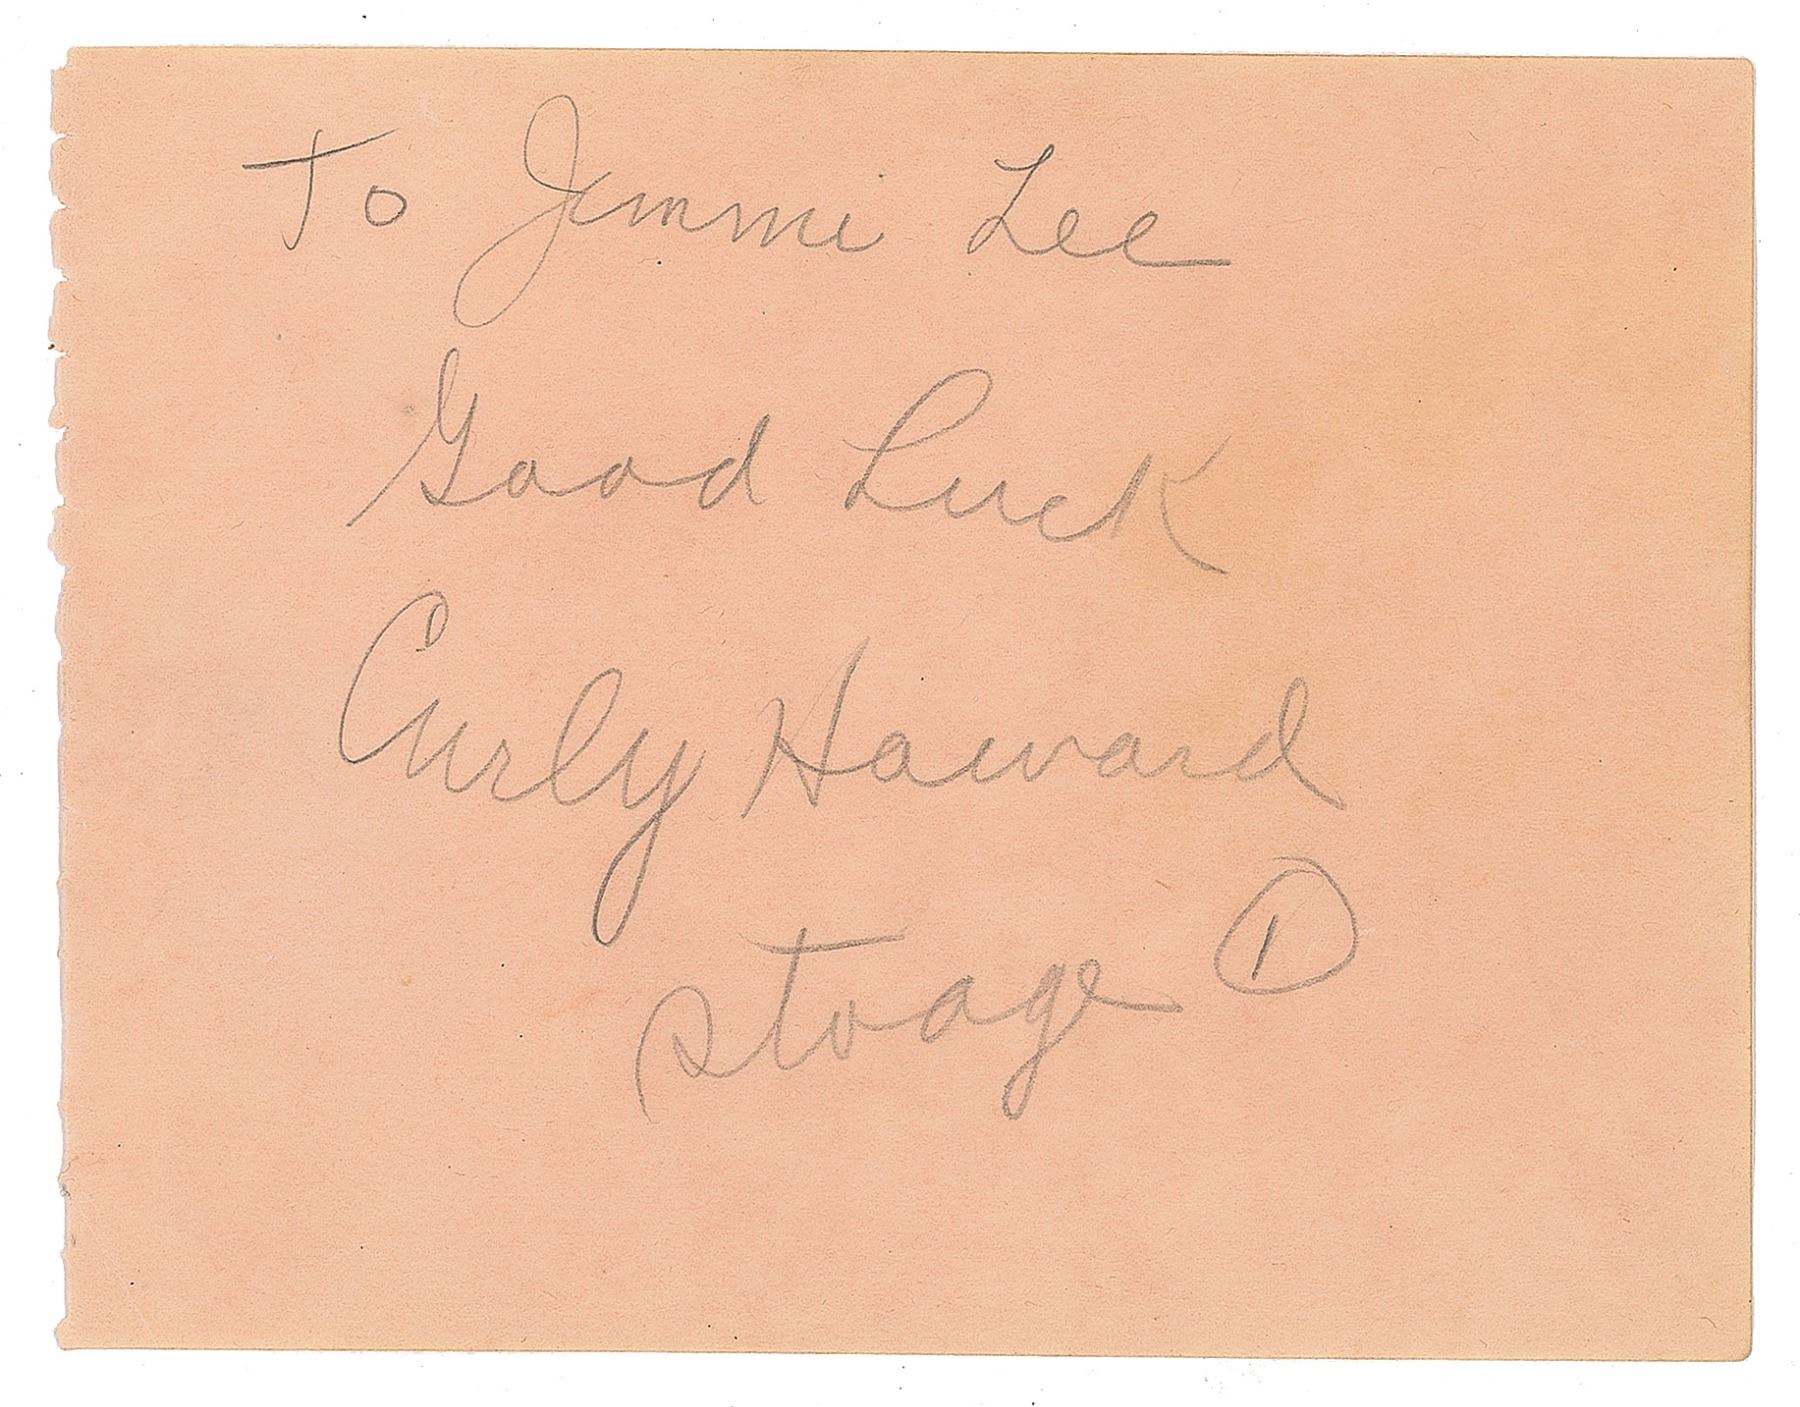 To Jimmi Lee
Good Luck
Curly Howard
Stooge ①